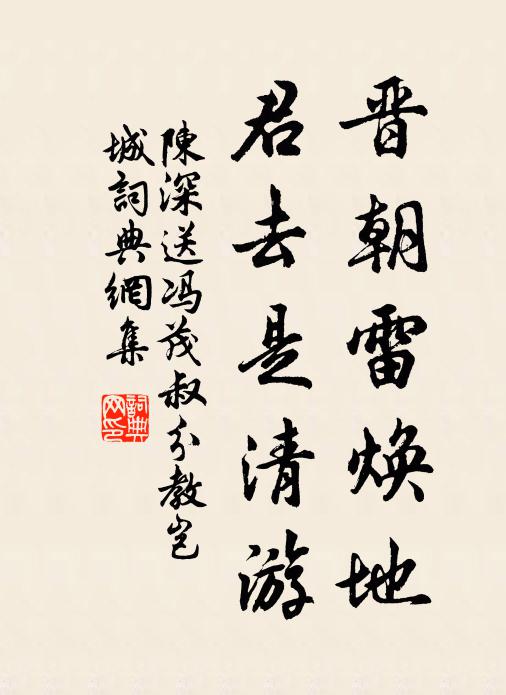 晋朝雷煥地
君去是清游
陳深送冯茂叔分教岂
城詞典網集
詞典网印